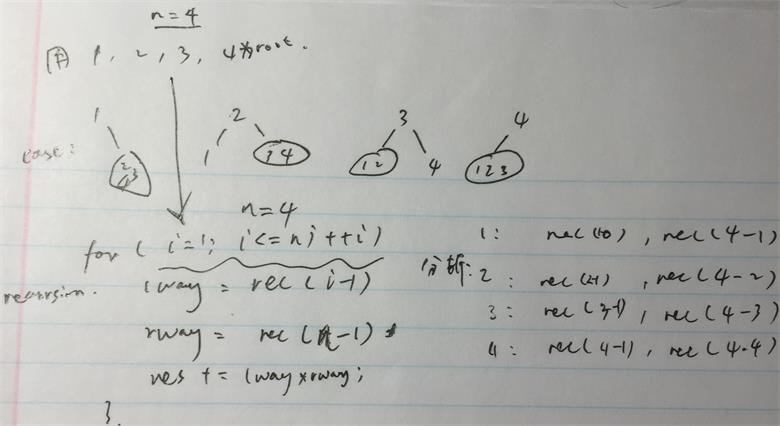 n=4
用 1, 2, 3, 4为root.
case:
1
2 3 4
2
1
3 4
3
1 2
4
4
1 2 3
n=4
for ( i=1; i<=n; ++i)
recursion.
lway = rec(i-1)
rway = rec(n-1)
res += lway×rway;
}.
分析:
1: , rec(4-1)
2: rec(2-1) , rec(4-2)
3: rec(3-1) , rec(4-3)
4: rec(4-1) , rec(4-4)